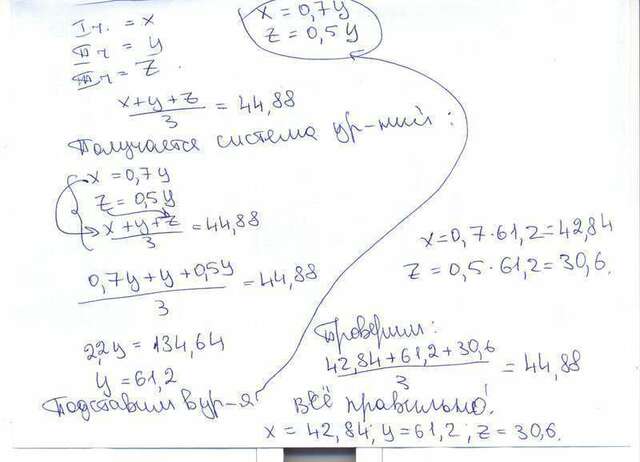 I ч. = x
II ч = y
III ч = z.
x = 0,7y
z = 0,5y
x+y+z / 3 = 44,88
Получается система ур-ний:
x = 0,7y
z = 0,5y
x+y+z / 3 = 44,88
0,7y+y+0,5y / 3 = 44,88
2,2y = 134,64
y = 61,2
Подставим в ур-я
x = 0,7·61,2 = 42,84
z = 0,5·61,2 = 30,6.
Проверим:
42,84+61,2+30,6 / 3 = 44,88
Всё правильно!
x = 42,84; y = 61,2; z = 30,6.